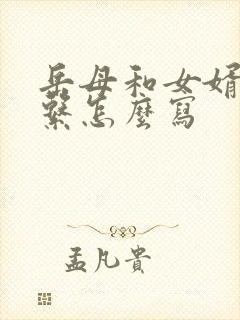 岳母和女婿
繫怎麼寫
孟凡貴